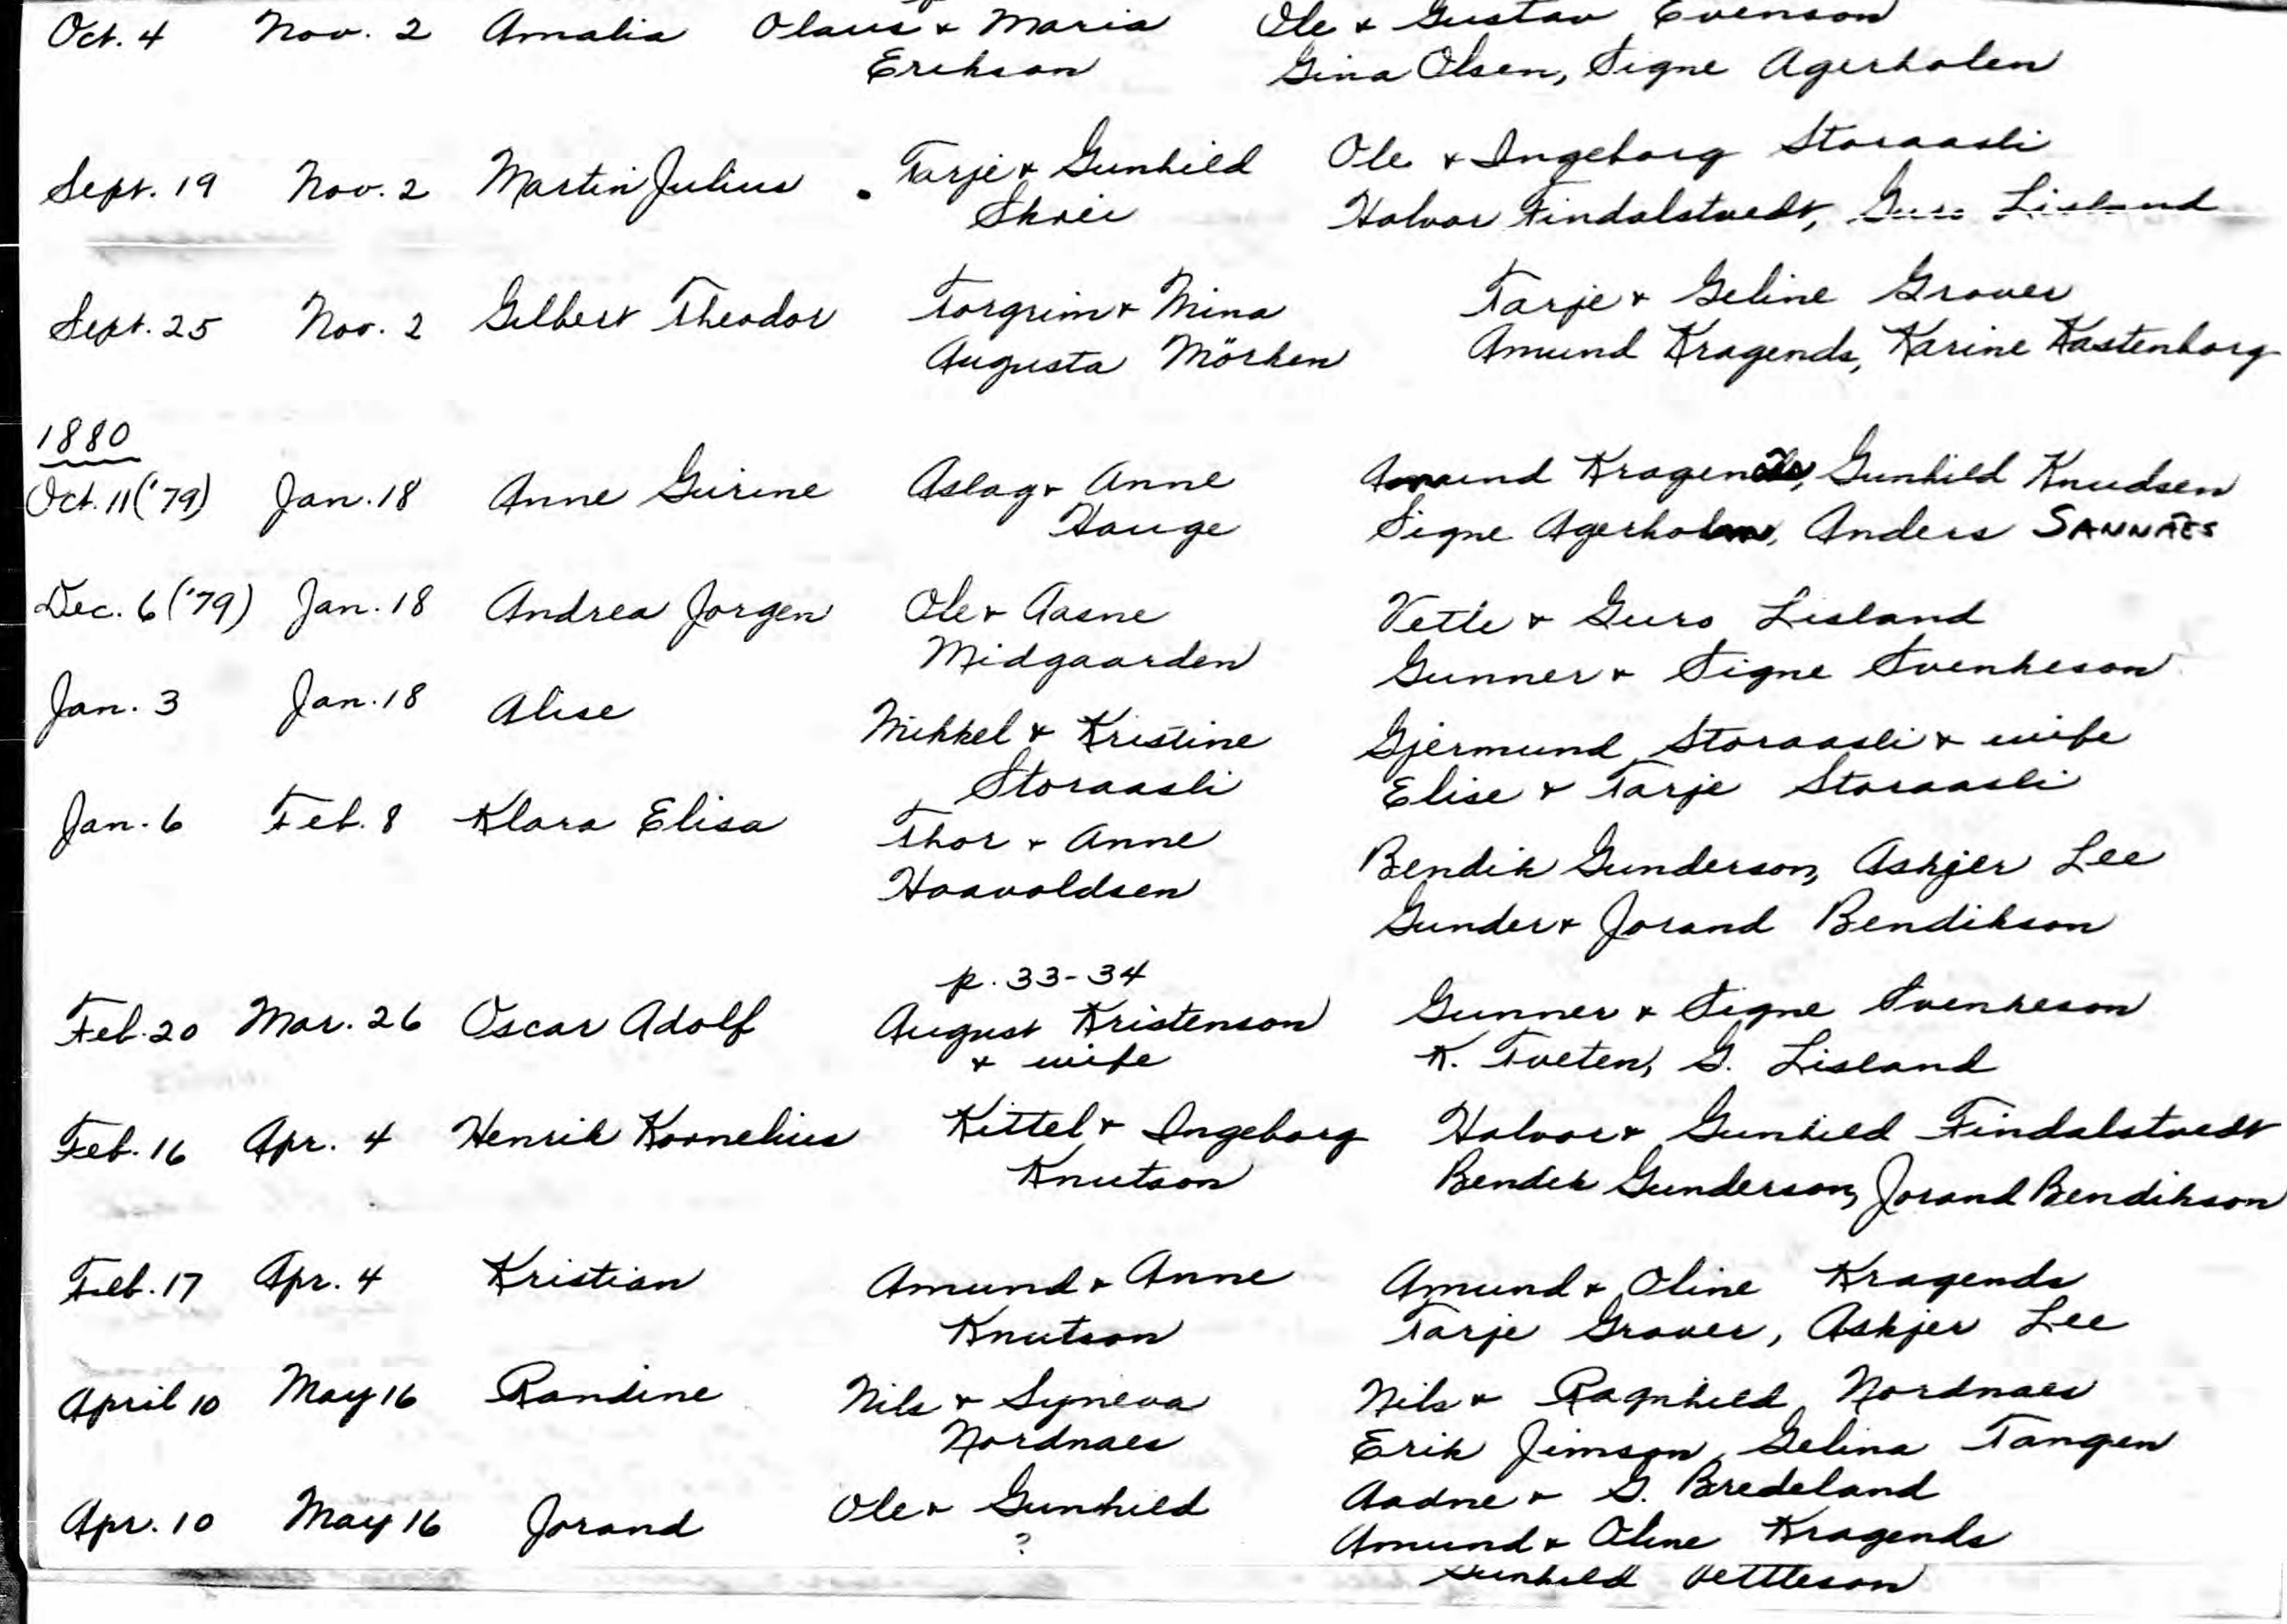 Oct. 4 Nov. 2 Amalia Olaus & Maria Ole & Gustav Evenson
Erikson Gina Olsen, Signe Agerholen
Sept. 19 Nov. 2 Martin Julius Tarje & Gunhild Ole & Ingeborg Storaasli
Skrei Halvor Findalstvedt, Guro Lisland
Sept. 25 Nov. 2 Gilbert Theodor Torgrim & Mina Tarje & Geline Grover
Augusta Mörken Amund Kragends, Karine Kastenborg
1880
Oct. 11 ('79) Jan. 18 Anne Gurine Aslag & Anne Amund Kragends, Gunhild Knudsen
Hauge Signe Agerholen, Anders SANNAES
Dec. 6 ('79) Jan. 18 Andrea Jorgen Ole & Aasne Vetle & Guro Lisland
Midgaarden Gunner & Signe Svenkeson
Jan. 3 Jan. 18 Alise Mikkel & Kristine Gjermund Storaasli & wife
Storaasli Elise & Tarje Storaasli
Jan. 6 Feb. 8 Klara Elisa Thor & Anne Bendik Gunderson, Askjer Lee
Haavoldsen Gunder & Jorand Bendikson
p. 33-34
Feb. 20 Mar. 26 Oscar Adolf August Kristenson Gunner & Signe Svenkeson
& wife K. Tveten, G. Lisland
Feb. 16 Apr. 4 Henrik Kornelius Kittel & Ingeborg Halvor & Gunhild Findalstvedt
Knutson Bendik Gunderson, Jorand Bendikson
Feb. 17 Apr. 4 Kristian Amund & Anne Amund & Oline Kragends
Knutson Tarje Grover, Askjer Lee
April 10 May 16 Randine Nils & Syneva Nils & Ragnhild Nordnaes
Nordnaes Erik Jimson, Gelina Tangen
Apr. 10 May 16 Jorand Ole & Gunhild Aadne & G. Bredeland
? Amund & Oline Kragends
Gunhild Vettleson